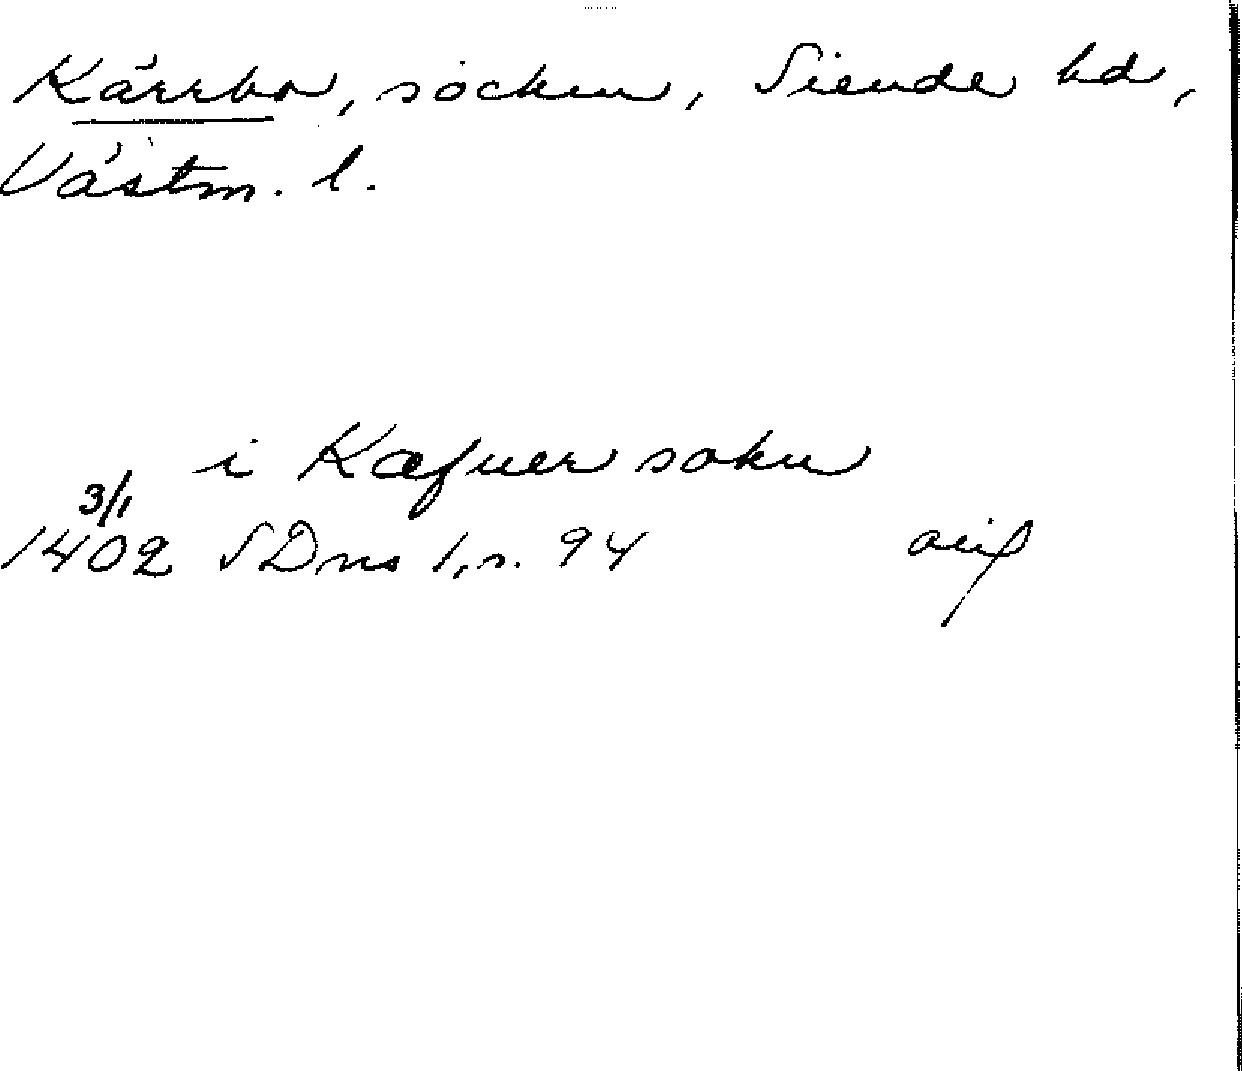 Kärrbo, socken, Siende hd,
Västm. l.
i Kæfuer sokn
3/1
1402 SDns 1, s. 94 avs